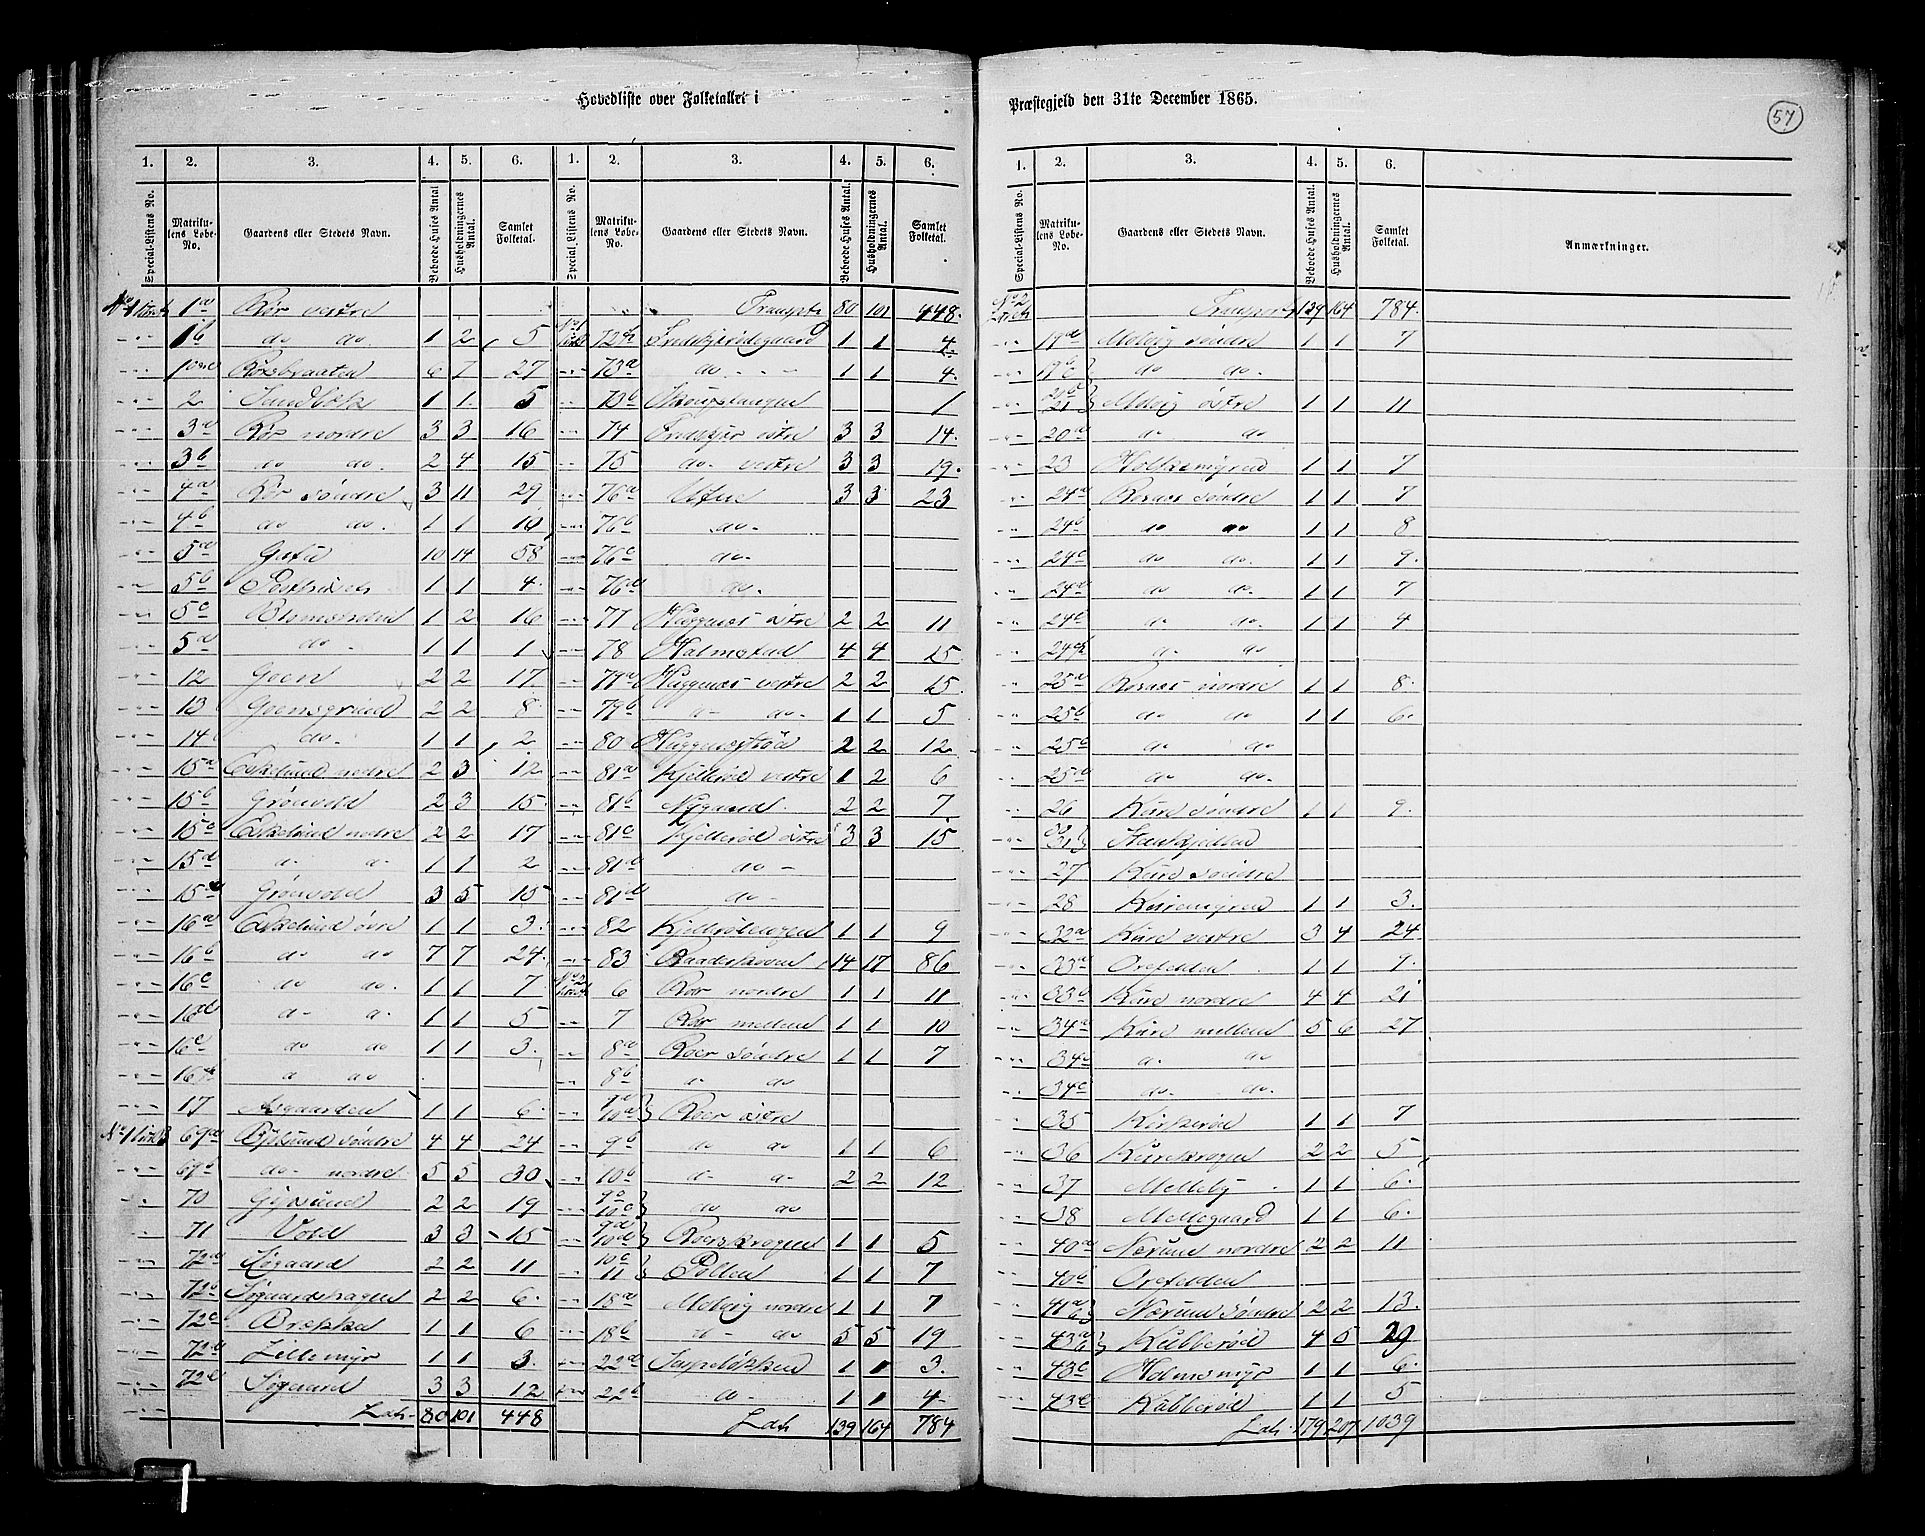 Hovedliste over Folketallet i
Præstegjeld den 31te December 1865.
57
1. 2. 3. 4. 5. 6. 1. 2. 3. 4. 5. 6.
Special-Listens No. Matrikulens Løbe-No. Gaardens eller Stedets Navn. Beboede Huses Antal Husholdningernes Antal. Samlet Folketal. Special Listens No. Matrikulens Løbe-No. Gaardens eller Stedets Navn. Beboede Huses Antal. Husholdningernes Antal. Samlet Folketal.
No 1 1a Rör vestre
1b do do 1 2 5
Rörsbraaten 6 7 27
2 Sandbæk 1 1 5
3a Rör nordre 3 3 16
3b do do 2 4 15
4a Rör söndre 3 11 29
4b do do 1 1 10
5a 10 14 58
5b 1 1 4
5c 1 2 16
5d do 1 1 1
12 Goen 2 2 17
13 Goensgrind 2 2 8
14 do 1 1 2
15a Eskelund nedre 2 3 12
15b Grönvold 2 3 15
15c Eskelund nedre 2 2 17
15d d d 1 1 2
15e Grönvold 3 5 15
16a Eskelund övre 1 1 3
16b do do 7 7 24
16c do do 1 1 7
16d d d 1 1 5
16e do do 1 1 3
16f d do
17 Asgaarden 1 1 6
69a Gylsund söndre 4 4 24
69b do nordre 5 5 30
70 Gipsund 2 2 19
71 Vold 3 3 15
72a Lögaard 2 2 11
72b 2 2 6
72c Brække 1 1 6
72d Lillemyr 1 1 3
72e Sögaard 3 3 12
Lats 80 101 448
Transport 80 101 448
72f 1 1 4
73a do 1 1 4
73b 1
74 östre 3 3 14
75 do vestre 3 3 19
76a 3 3 23
76b do
76c do
76d do
77 Huggenæs östre 2 2 11
78 Halmstad 4 4 15
79a Huggenæs vestre 2 2 15
79b d do 1 1 5
80 2 2 12
81a Kjelleröd vestre 1 2 6
81b Nygaard 2 2 7
81c Kjelleröd östre 3 3 15
81d do
81e do
82 Kjellerödengen 1 1 9
83 14 17 86
No 2 6 Rör nordre 1 1 11
7 Rör mellem 1 1 10
8a Roer söndre 1 1 7
8b d do
9a 10a Roer östre
9b do do 1 1 6
10b d d 2 2 12
9c 10c do do
9d 10d Roerskragen 1 1 5
10e 11 Pollen 1 1 7
18a Moberg nordre 1 1 7
18b d do 5 5 19
22a 1 1 3
22b d 1 1 4
Lats 139 164 784
1. 2. 3. 4. 5. 6.
Special-Listens No. Matrikulens Løbe-No. Gaardens eller Stedets Navn. Beboede Huses Antal Husholdningernes Antal. Samlet Folketal. Anmærkninger.
No 2 Transport 139 164 784
19a Moberg söndre 1 1 7
19b do do
21 Moberg östre 1 1 11
20a do do
23 1 1 7
24a Rosnæs söndre 1 1 7
24b do do 1 1 8
24c do do 1 1 7
24d do do 1 1 7
24e do do 1 1 4
24f d do
25a Rosnæs nordre 1 1 8
25b do do 1 1 6
25c do do
25d do do
26 Kure söndre 1 1 9
31
27 Kure söndre
28 1 1 3
32a Kure vestre 3 4 24
33a Orefelden 1 1 7
33b Kure nordre 4 4 21
34a Kure mellem 5 6 27
34b d do
34c do do
35 Kirkeröd 1 1 7
36 Kurekragen 2 2 5
37 Melleby 1 1 6
38 Mellegaard 1 1 6
40a Nærum nordre 2 2 11
40b Orefelden
41a b Nærum söndre 2 2 13
43a b Kabberöd 4 5 29
43c Holmsmyr 1 1 6
43e Kabberöd 1 1 5
Lats 179 207 1039